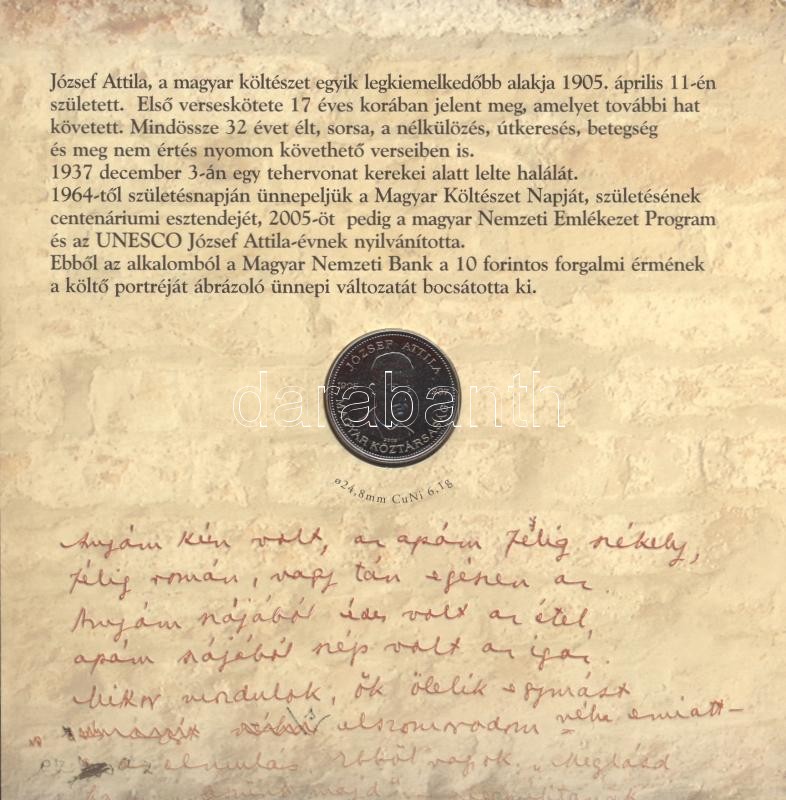 József Attila, a magyar költészet egyik legkiemelkedőbb alakja 1905. április 11-én
született. Első verseskötete 17 éves korában jelent meg, amelyet további hat
követett. Mindössze 32 évet élt, sorsa, a nélkülözés, útkeresés, betegség
és meg nem értés nyomon követhető verseiben is.
1937 december 3-án egy tehervonat kerekei alatt lelte halálát.
1964-től születésnapján ünnepeljük a Magyar Költészet Napját, születésének
centenáriumi esztendejét, 2005-öt pedig a magyar Nemzeti Emlékezet Program
és az UNESCO József Attila-évnek nyilvánította.
Ebből az alkalomból a Magyar Nemzeti Bank a 10 forintos forgalmi érmének
a költő portréját ábrázoló ünnepi változatát bocsátotta ki.
JÓZSEF ATTILA
1905
darabanth
MAGYAR KÖZTÁRSASÁG
2005
ø24,8mm CuNi 6,1g
Anyám kún volt, az apám félig székely,
félig román, vagy tán egészen az.
Anyám szájából édes volt az étel,
apám szájából szép volt az igaz.
Mikor mozdulok, ők ölelik egymást
elszomorodom néha emiatt –
az elmulás. Ebből vagyok. „Meglásd